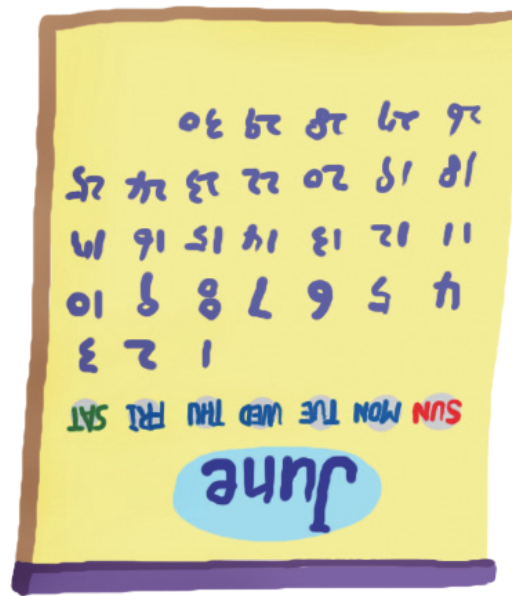 June
SUN MON TUE WED THU FRI SAT
1 2 3
4 5 6 7 8 9 10
11 12 13 14 15 16 17
18 19 20 22 23 24 25
26 27 28 29 30